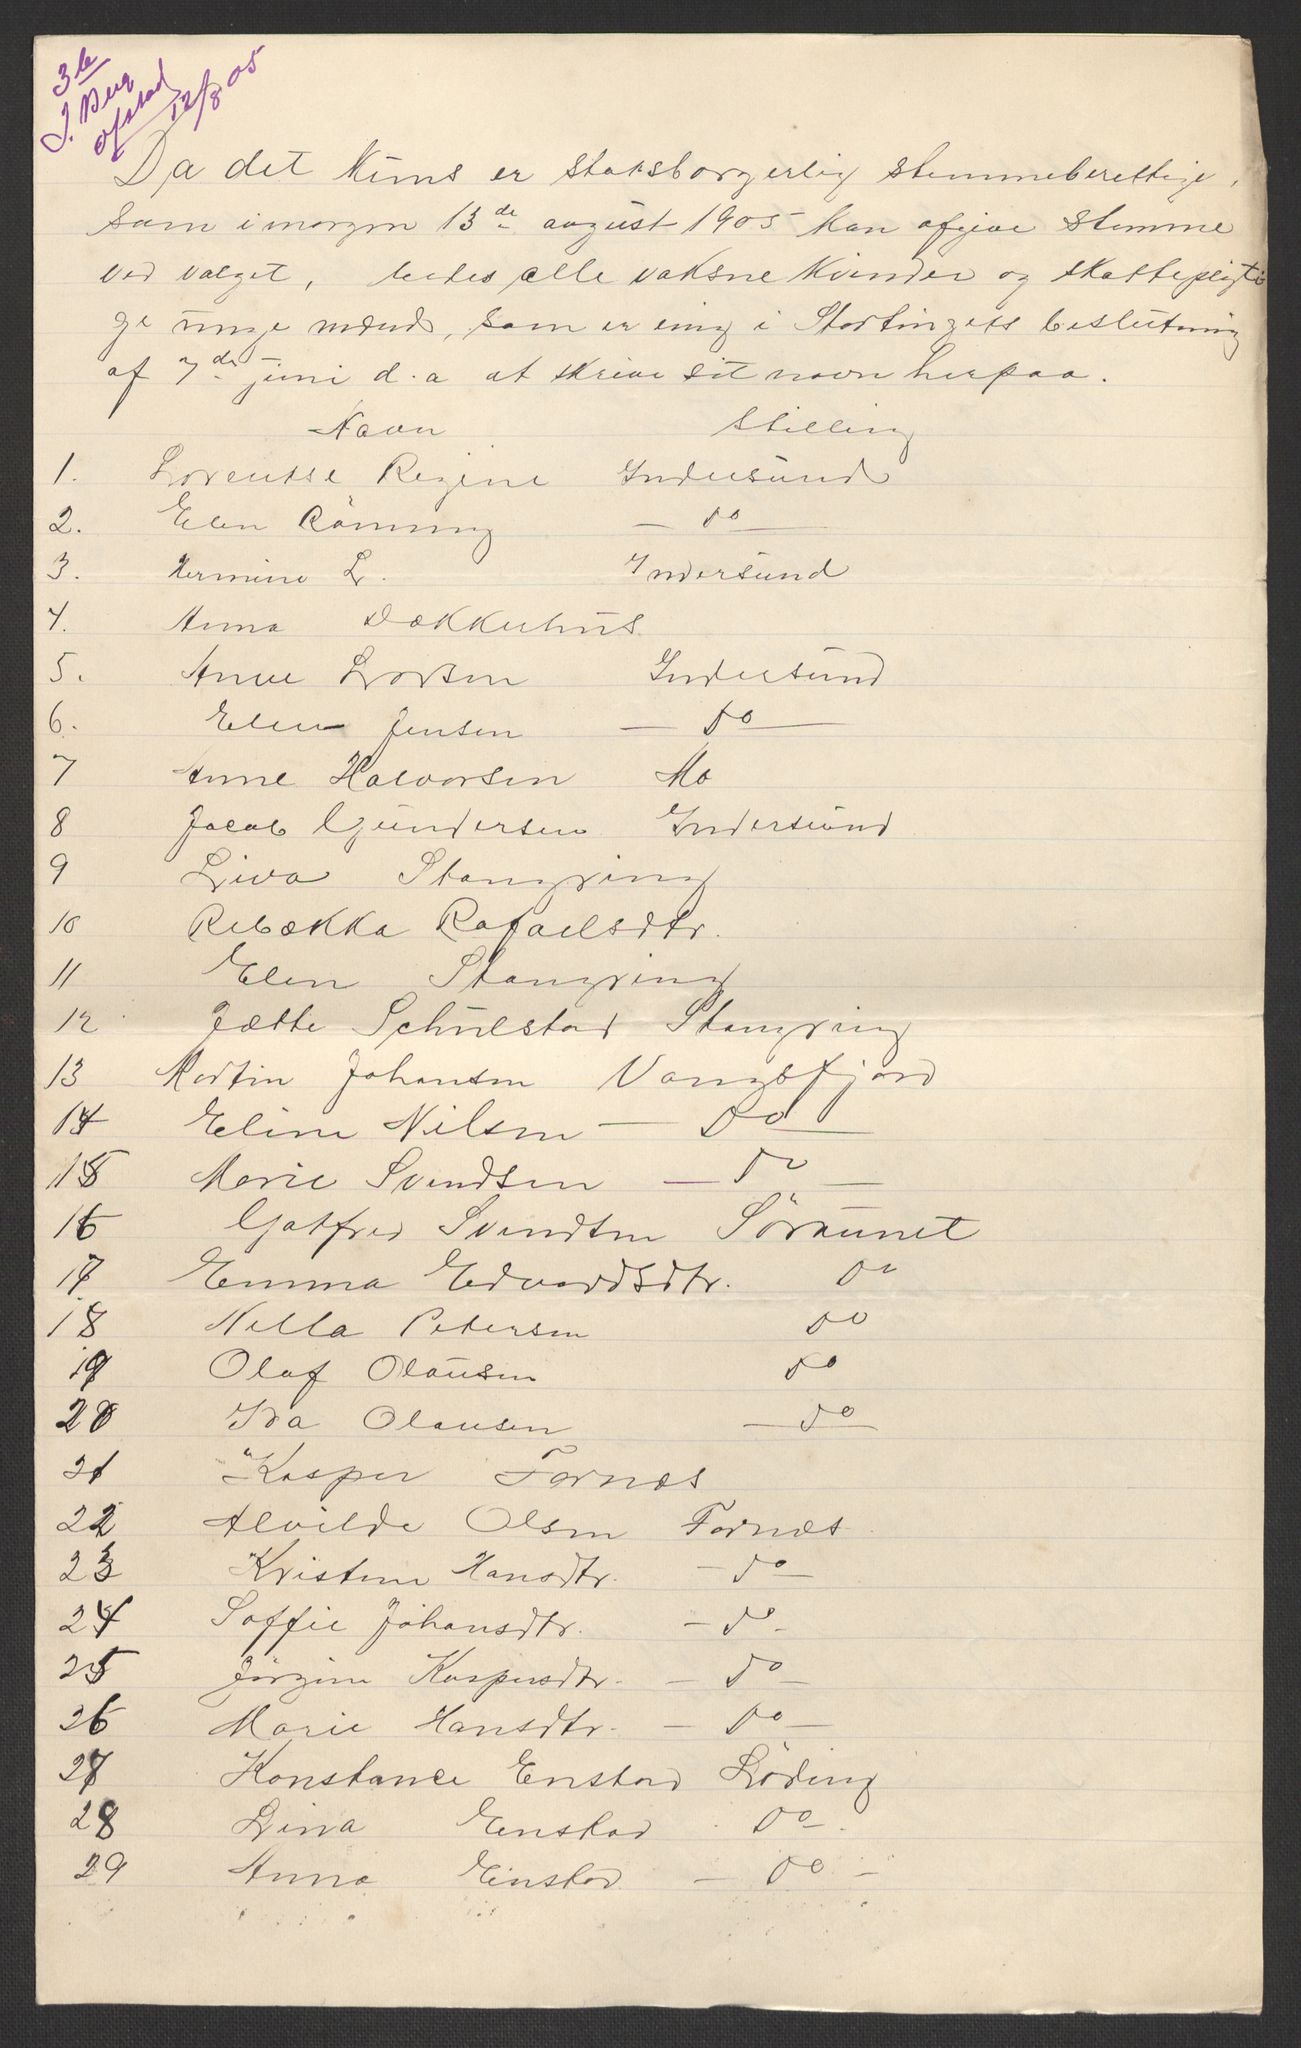 3 b
J. Berg
Ofstad
12/8 05
Da det kuns er statsborgerlig stemmeberettige,
som i morgen 13de august 1905 kan afgive stemme
ved valget, bedes alle vaksne kvinder og skattepligti
ge unge mænd, som er enig i Stortingets beslutning
af 7de juni d.a at skrive sit navn herpaa.
Navn Stilling
1. Lorentse Regine Indersund
2. Elen Rönning — do —
3. Hermine L. Indersund
4. Anna Dækkerhus
5. Anne Larsen Indersund
6. Elen Jensen — do —
7 Anne Halvorsen Mo
8 Jacob Gundersen Indersund
9 Liva Stangring
10 Rebækka Rafaelsdtr.
11 Elen Stangring
12 Jætte Schulstad Stangring
13 Martin Johansen Vangsfjord
14 Eline Nilsen — Do —
15 Marie Svendsen — do —
16 Gotfred Svendsen Söraunet
17 Emma Edvardsdtr. Do
18 Nella Petersen do
19 Olaf Olausen do
20 Ida Olausen — do —
21 Kasper Fornæs
22 Alvilde Olsen Fornæs
23 Kristine Hansdtr. — do —
24 Soffie Johansdtr. — do —
25 Jörgine Kaspersdtr. — do —
26 Marie Hansdtr. — Do —
27 Konstance Enstad Löding
28 Lina Enstad Do
29 Anna Einstad — Do —